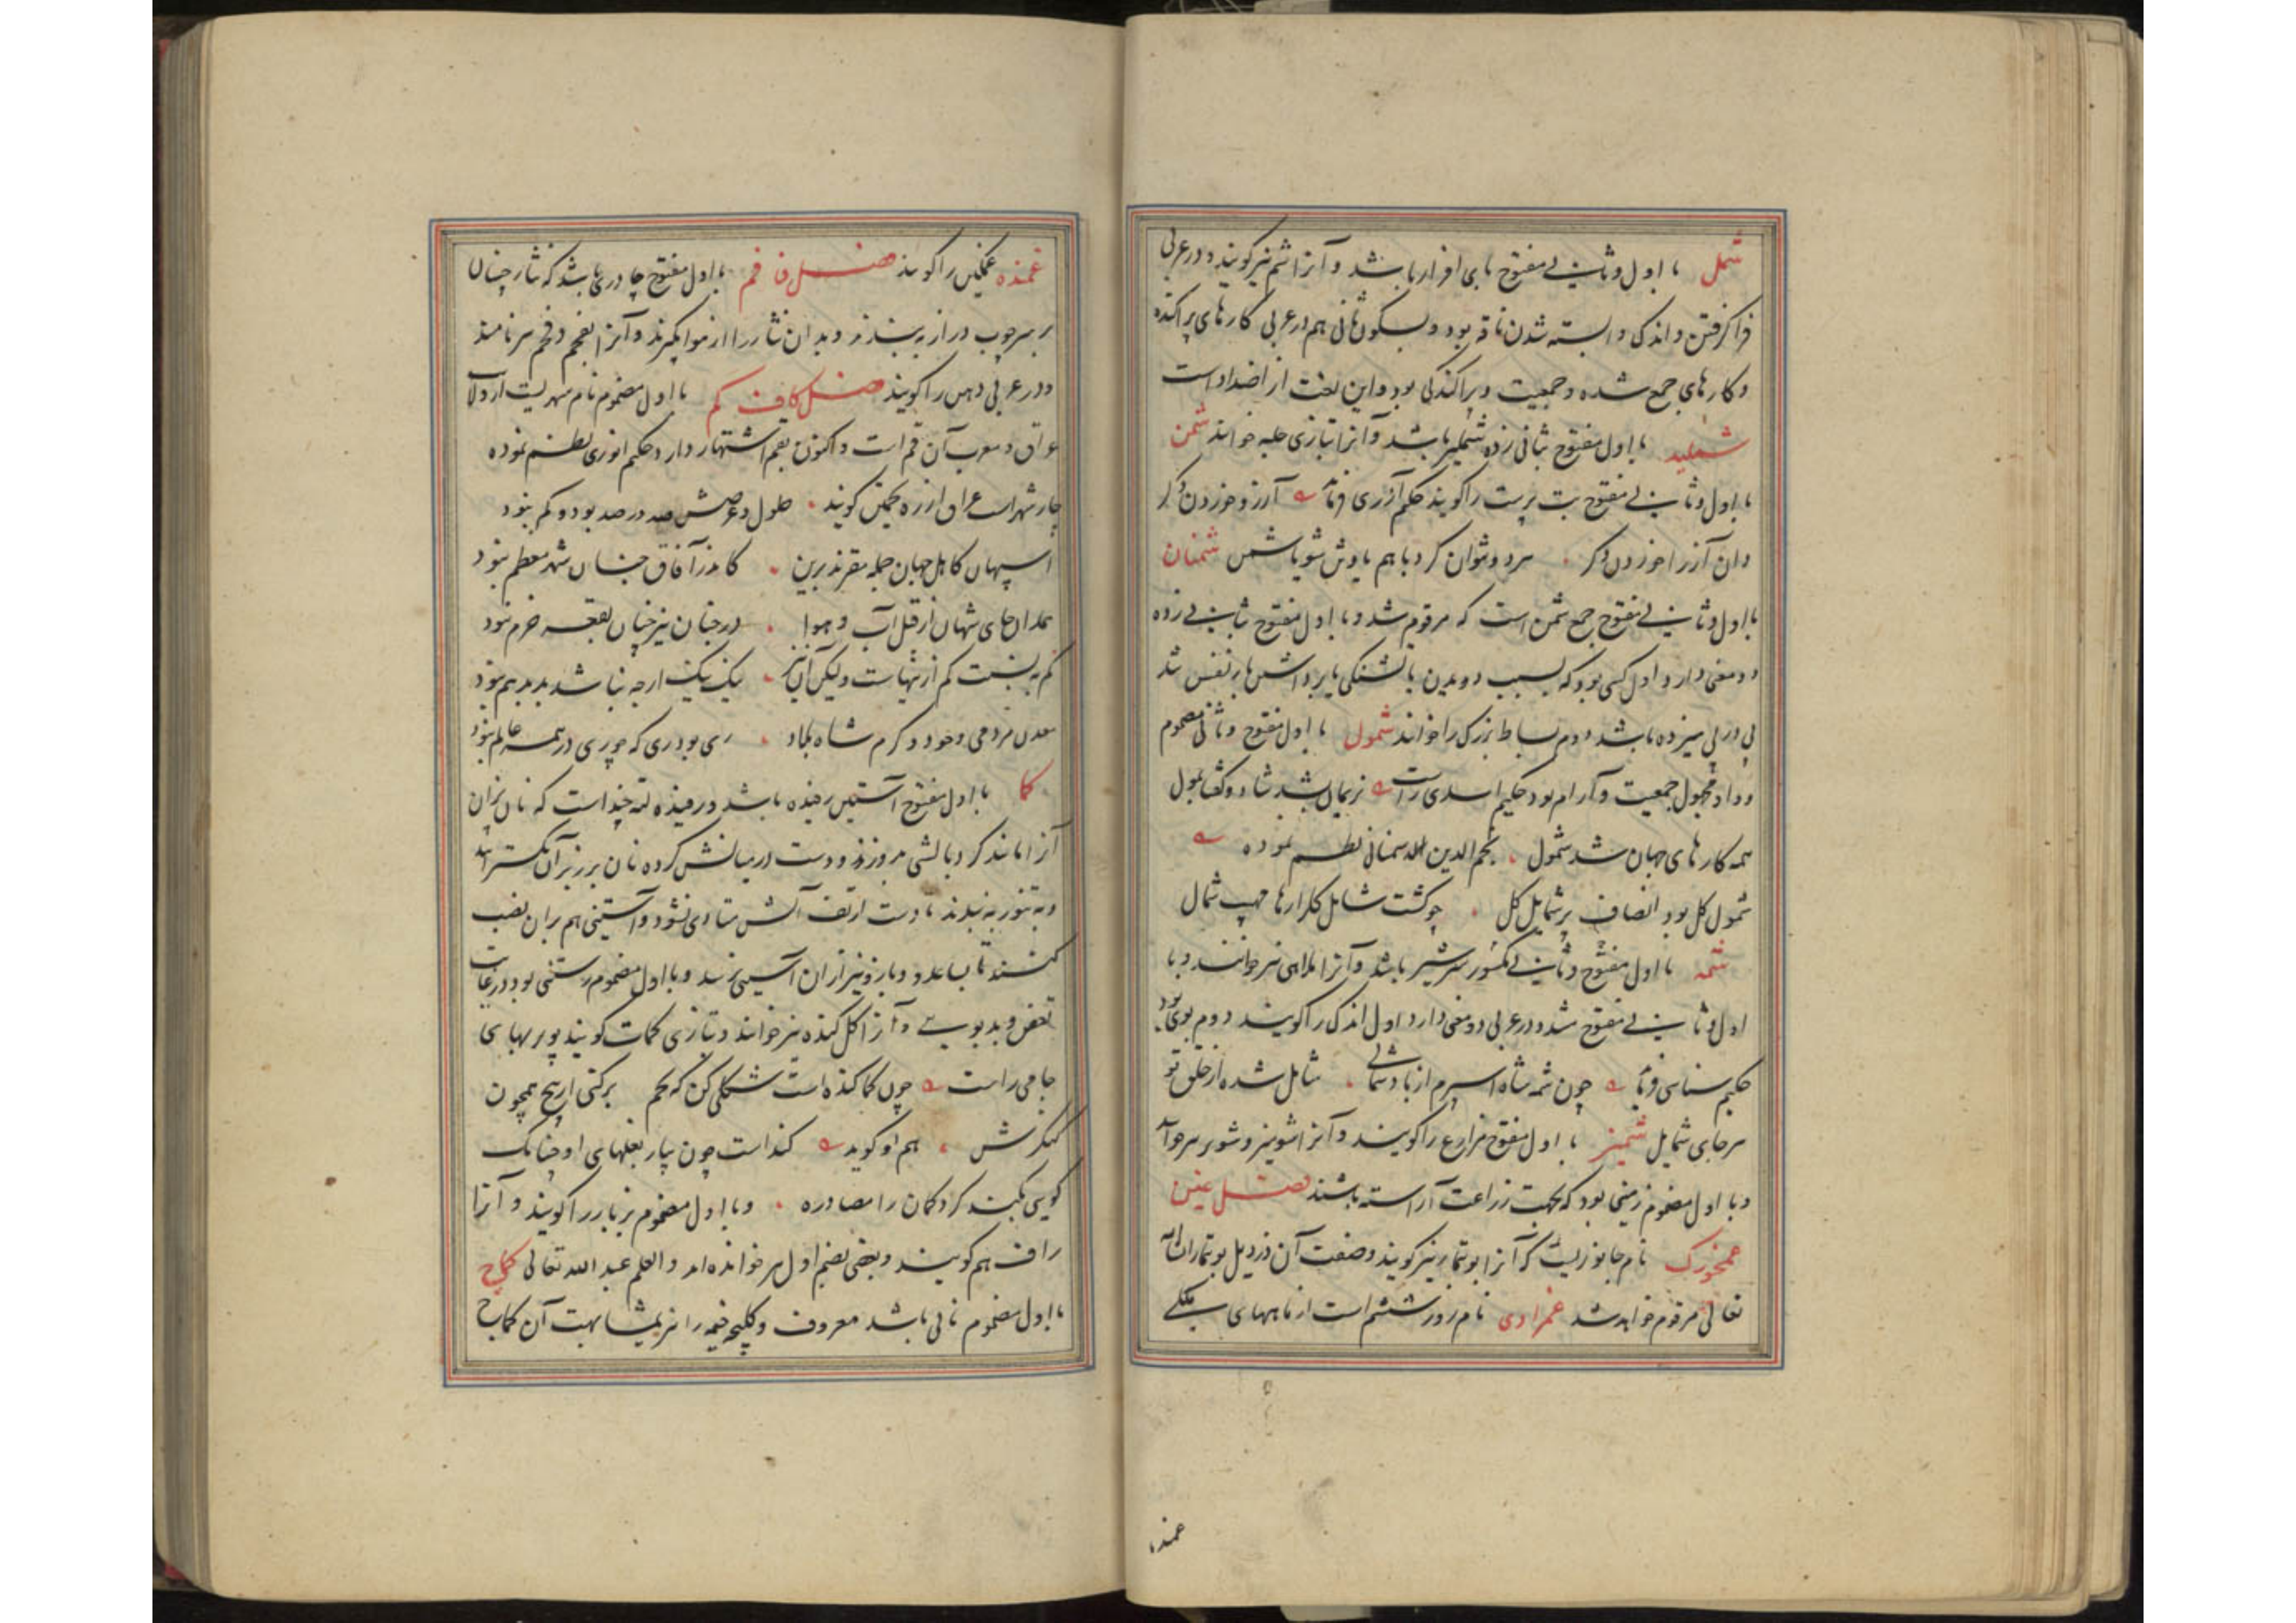 شمل با اول و ثانی مفتوح پای افزار باشد و آنرا شم نیز گویند و در عربی
فرا گرفتن و اندکی و ابسته شدن ناقه بود و بسکون ثانی هم در عربی کارهای پراکنده
و کارهای جمع شده و جمعیت و پراکندگی بود و این لغت از اضداد است
شملید با اول مفتوح بثانی زده شملیز باشد و آنرا بتازی حلبه خوانند شمن
با اول و ثانی مفتوح بت پرست را گویند حکیم آذری فرماید آرزو خوردن دگر
و ان آزر اخوردن دگر هر دو نتوان کرد با هم یا وثن شو یا شمن شمنان
با اول و ثانی مفتوح جمع شمن است که مرقوم شد و با اول مفتوح بثانی زده
دو معنی دارد اول کسی بود که بسبب دویدن یا تشنگی یا برداشتن بار نفس تند
پی در پی میزده باشد دوم بساط بزرگ را خوانند شمول با اول مفتوح و ثانی مضموم
و واو مجهول جمعیت و آرام بود حکیم اسدی راست نریمان شد شاد و گفتا بمول
همه کارهای جهان شد شمول نجم الدین سمنانی نظم نموده
شمول کل بود انصاف بر شمایل کل چو گشت شامل گلزارها مهب شمال
شمه با اول مفتوح و ثانی مکسور سرشیر باشد و آنرا ملاهی نیز خوانند و با
اول و ثانی مفتوح مشدد در عربی دو معنی دارد اول اندک را گویند دوم بوی بود
حکیم سنایی فرماید چون شمه شاه اسپرم از باد شمالی شامل شده از خلق تو
هر جای شمایل شمیز با اول مفتوح مزارع را گویند و آنرا شومیز و شوریز هم خوانند
و با اول مضموم زمینی بود که بجهت زراعت آراسته باشند فصل غین
غمخورک نام جانوریست که آنرا بوتیمار نیز گویند و صفت آن در ذیل بوتیمار ان شاء الله
تعالی مرقوم خواهد شد غمزادی نام روز ششم است از ماههای ملکی
غمنده
غمنده غمگین را گویند فصل فا فم با اول مفتوح چادری باشد که نثار چینان
بر سر چوب دراز به بندند و بدان نثار را از هوا بگیرند و آنرا فغجم و فخم نیز نامند
و در عربی دهن را گویند فصل کاف کم با اول مضموم نام شهریست از ولایت
عراق و معرب آن قم است و اکنون بقم اشتهار دارد حکیم انوری نظم نموده
چار شهر است عراق از ره تخمین گویند طول و عرضش صد در صد بود و کم نبود
اسپهان کاهل جهان جمله مقرند برین کاندر آفاق چنان شهر معظم نبود
همدان جای شهان از قبل آب و هوا در جهان نیز چنان بقعه خرم نبود
کم به نسبت کم ازینهاست ولیکن آن نیز نیک نیک ارچه نباشد بد بد هم نبود
معدن مردمی و جود و کرم شاه بلاد ری بود ری که چو ری در همه عالم نبود
کما با اول مفتوح آستین رفیده باشد و رفیده لته چند است که نان پزان
آنرا مانند گرد بالشی بدوزند و دست در میانش کرده نان بر زبر آن گسترانند
و به تنور بندند تا دست از تف آتش متاذی نشود و آستینی هم بران نصب
کنند تا بساعد و بازو نیز از ان آسیبی نرسد و با اول مضموم رستنی بود در غایت
تعفن و بدبویی و آنرا گل گنده نیز خوانند و بتازی کمات گویند پور بهای
جامی راست چون کما گنده است شکلی کن که بحکم برکنی از بیخ همچون
کنگرش هم او گوید گنداست چون پیاز بغلهای او چنانک
گویی بکند کرد کمان را مصادره و با اول مضموم بربار را گویند و آنرا
راف هم گویند و بعضی بفتح اول هم خوانده اند والعلم عند الله تعالی کماج
با اول مضموم نانی باشد معروف و کلیچه خیمه را نیز بمشابهت آن کماج